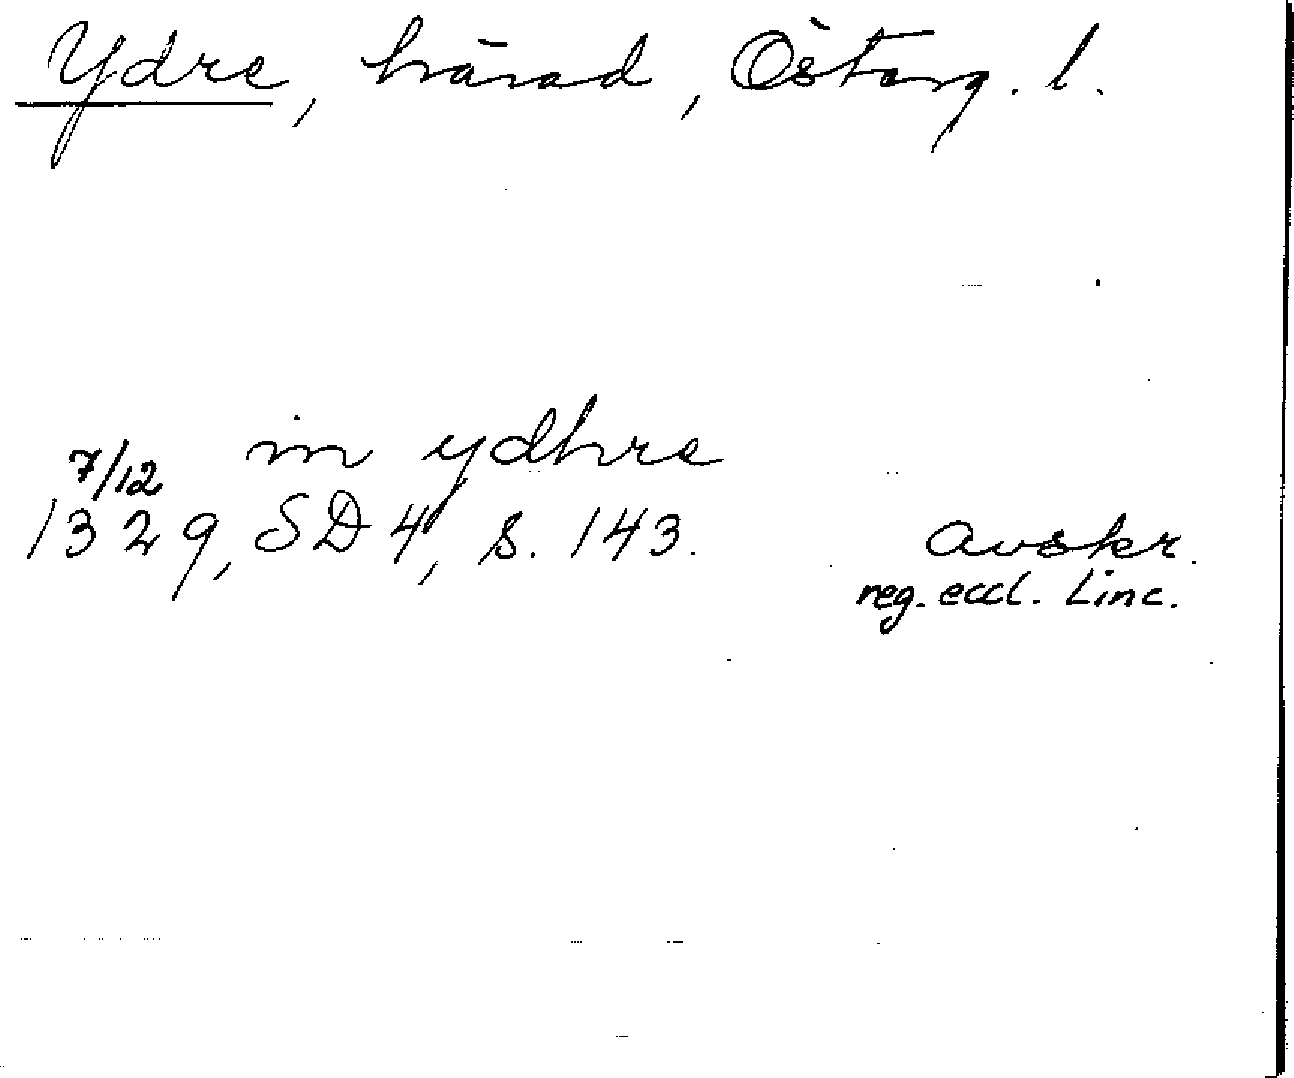 Ydre, härad, Österg. l.
in ydhre
7/12
1329, SD 4, s. 143. avskr.
reg. eccl. Linc.